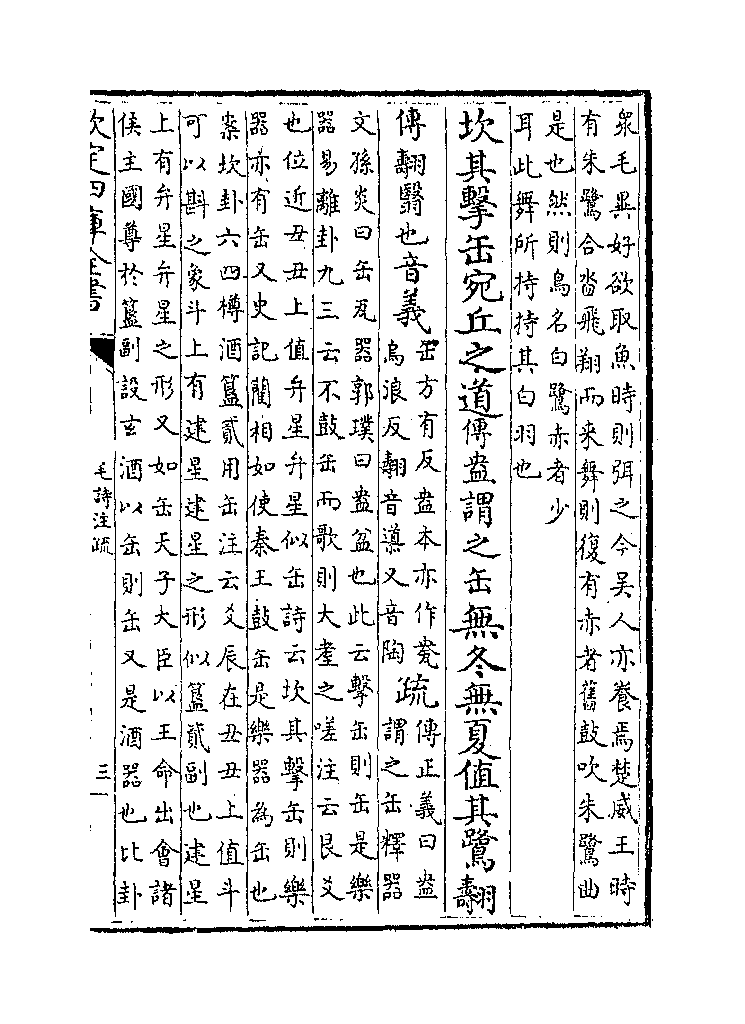 衆毛異好欲取魚時則弭之今吳人亦養焉楚威王時
有朱鷺合沓飛翔而来舞則復有赤者舊鼓吹朱鷺曲
是也然則鳥名白鷺赤者少
耳此舞所持持其白羽也
坎其擊缶宛丘之道傳盎謂之缶無冬無夏值其鷺翿
傳翿翳也音義
缶方有反盎本亦作
烏浪反翿音導又音陶
疏
傳正義曰盎
謂之缶釋器
文孫炎曰缶瓦器郭璞曰盎盆也此云擊缶則缶是樂
器易離卦九三云不鼓缶而歌則大耋之嗟注云艮爻
也位近丑丑上值弁星弁星似缶詩云坎其擊缶則樂
器亦有缶又史記藺相如使秦王鼓缶是樂器為缶也
案坎卦六四樽酒簋貳用缶注云爻辰在丑丑上值斗
可以斟之象斗上有建星建星之形似簋貳副也建星
上有弁星弁星之形又如缶天子大臣以王命出會諸
侯主國尊於簋副設玄酒以缶則缶又是酒器也比卦
欽定四庫全書
毛詩注疏
三